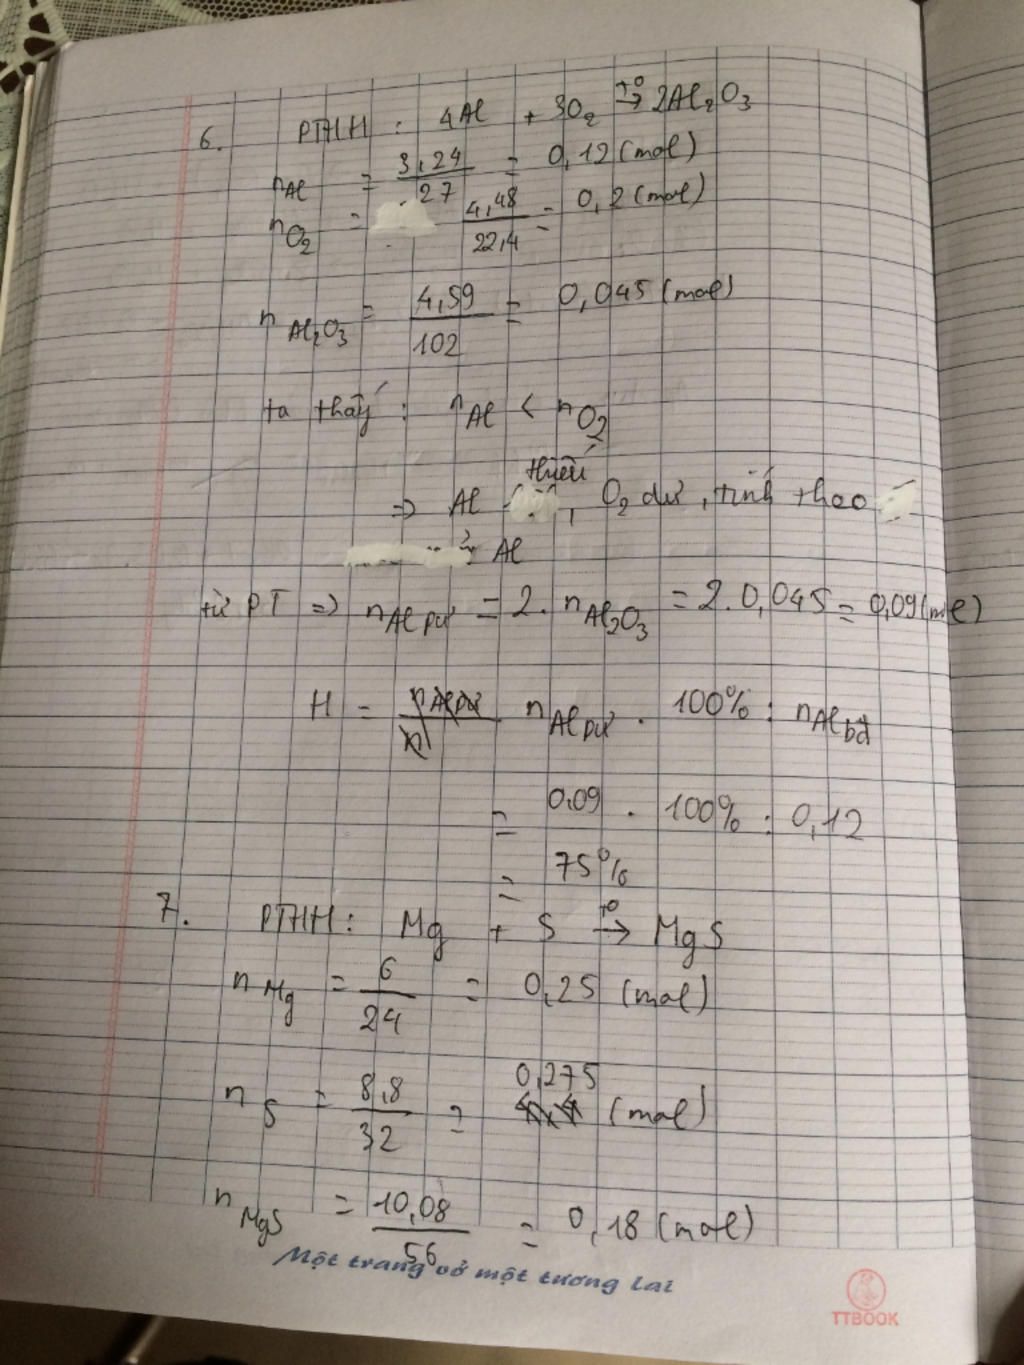 6. PTHH : 4Al + 3O₂ →(t°) 2Al₂O₃
nAl = 3,24/27 = 0,12 (mol)
nO₂ = 4,48/22,4 = 0,2 (mol)
nAl₂O₃ = 4,59/102 = 0,045 (mol)
ta thấy : nAl < nO₂
thiếu
⇒ Al , O₂ dư , tính theo
Al
từ PT ⇒ nAl pư = 2. nAl₂O₃ = 2. 0,045 = 0,09 (mol)
H = nAl pư . 100% : nAl bđ
= 0,09 . 100% : 0,12
= 75%
7. PTHH : Mg + S →(t°) MgS
nMg = 6/24 = 0,25 (mol)
nS = 8,8/32 = 0,275 (mol)
nMgS = 10,08/56 = 0,18 (mol)
Một trang vở một tương lai
TTBOOK